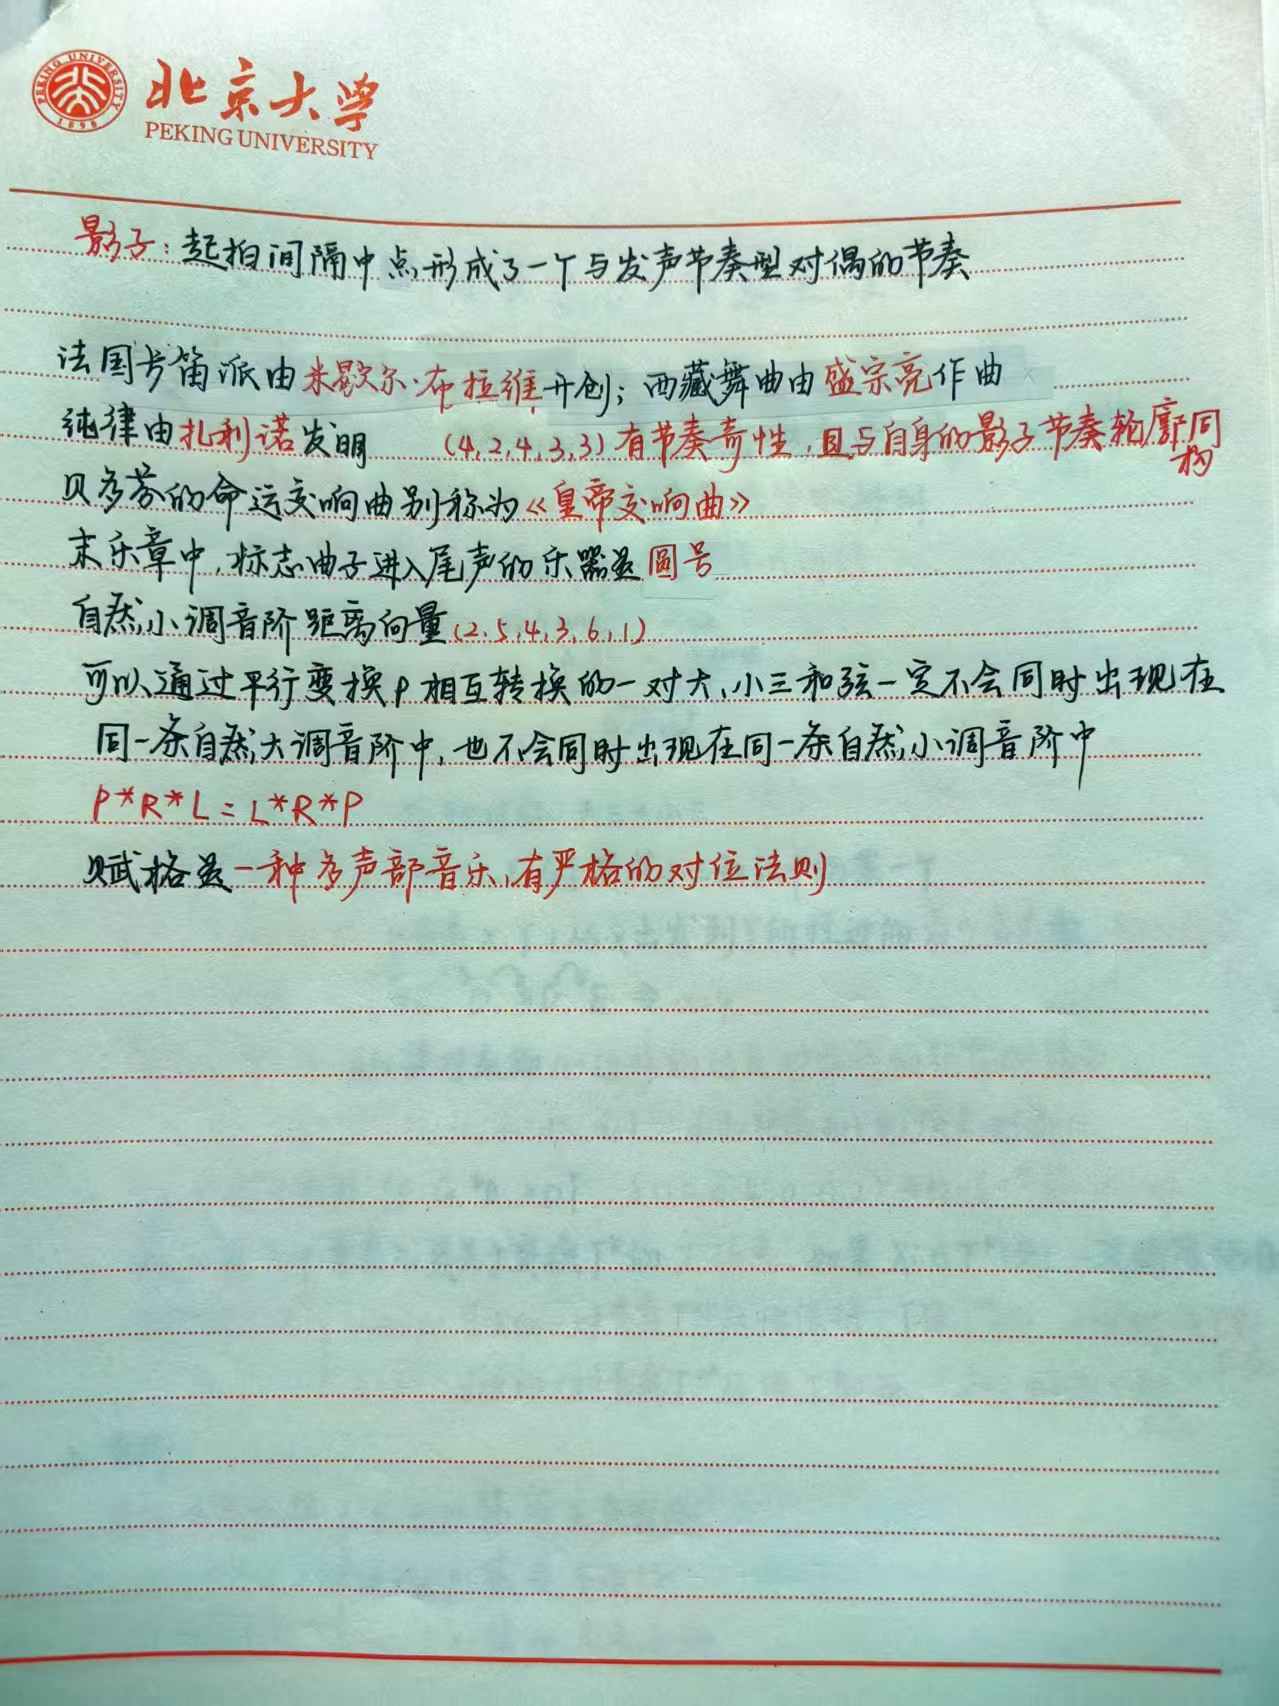 PEKING UNIVERSITY
1898
北京大学
PEKING UNIVERSITY
影子:起拍间隔中点形成了一个与发声节奏型对偶的节奏
法国长笛派由米歇尔·布拉维开创;西藏舞曲由盛宗亮作曲
纯律由扎利诺发明 (4,2,4,3,3)有节奏奇性,且与自身的影子节奏轮廓同构
贝多芬的命运交响曲别称为《皇帝交响曲》
末乐章中,标志曲子进入尾声的乐器是圆号
自然小调音阶距离向量(2,5,4,3,6,1)
可以通过平行变换P相互转换的一对大、小三和弦一定不会同时出现在
同一条自然大调音阶中,也不会同时出现在同一条自然小调音阶中
P*R*L=L*R*P
赋格是一种多声部音乐,有严格的对位法则